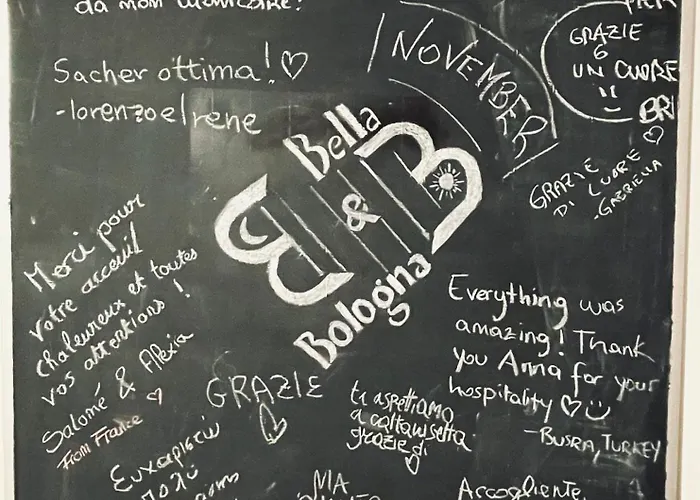 da mon
NOVEMBER
GRAZIE
6
UN CUORE
BRI
Sacher ottima!
-lorenzo e Irene
GRAZIE
DI CUORE
-GABRIELLA
Bella
B&B
Bologna
Merci pour
votre acceuil
chaleureux et toutes
vos attentions !
Salomé & Alexia
From France
Everything was
amazing! Thank
you Anna for your
hospitality
-BUSRA, TURKEY
GRAZIE
ti aspettiamo
a caltanissetta
grazie di
Ευχαριστώ
πολύ
MA
Accogliente,